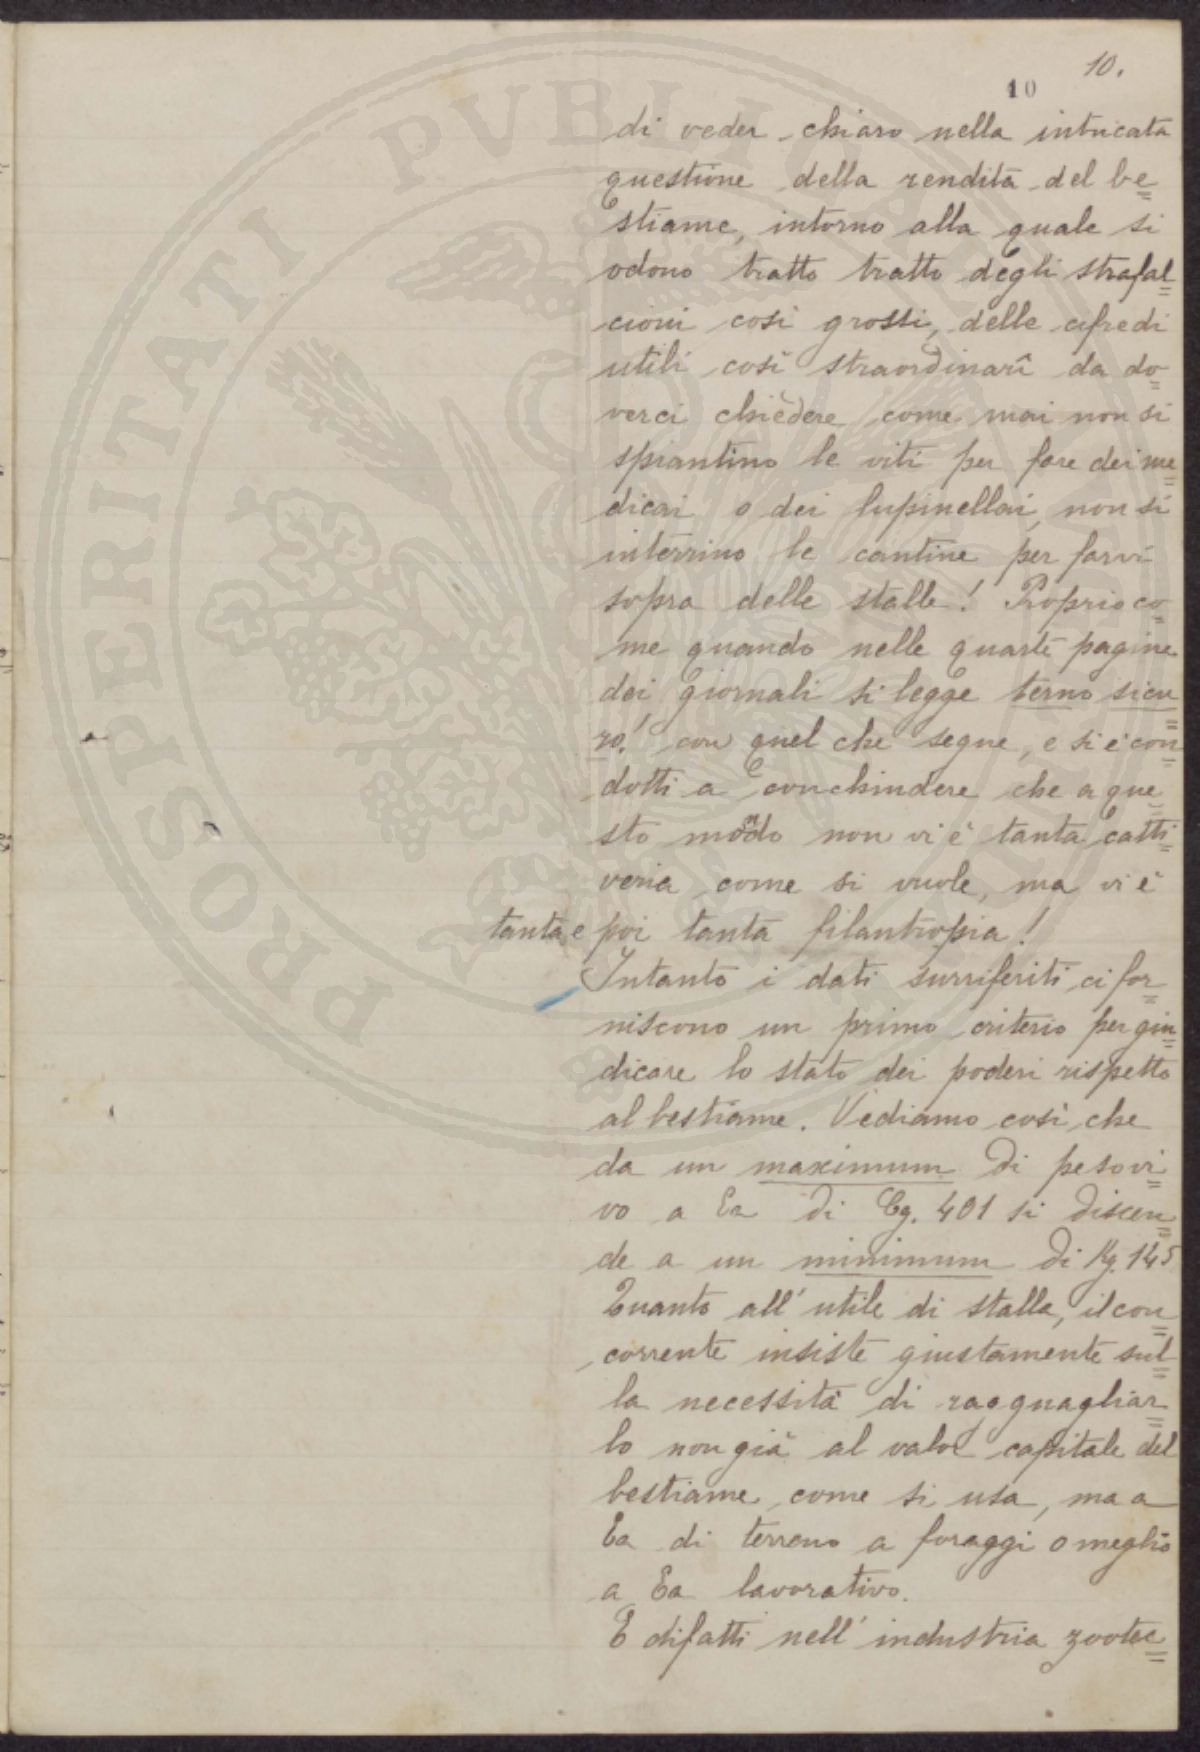 10.
10
di veder chiaro nella intricata
questione della rendita del be=
stiame, intorno alla quale si
odono tratto tratto degli strafal=
cioni così grossi, delle cifre di
utili così straordinarî da do=
verci chiedere come mai non si
spiantino le viti per fare dei me=
dicai o dei lupinellai, non si
interrino le cantine per farvi
sopra delle stalle! Proprio co=
me quando nelle quarte pagine
dei giornali si legge terno sicu=
ro! con quel che segue, e si è con=
dotti a conchiudere che a que=
sto mondo non vi è tanta catti=
veria come si vuole, ma vi è
tanta e poi tanta filantropia!
Intanto i dati surriferiti ci for=
niscono un primo criterio per giu=
dicare lo stato dei poderi rispetto
al bestiame. Vediamo così che
da un maximum di peso vi=
vo a Ea di Cg. 401 si discen=
de a un minimum di Kg. 145
Quanto all'utile di stalla, il con=
corrente insiste giustamente sul=
la necessità di ragguagliar=
lo non già al valor capitale del
bestiame, come si usa, ma a
Ea di terreno a foraggi o meglio
a Ea lavorativo.
E difatti nell'industria zootec=
PROSPERITATI PVBLICAE